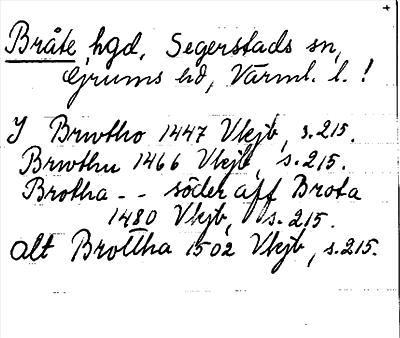 Bråte, hgd, Segerstads sn,
Grums hd, Värml. l. !
I Brwtho 1447 Vkjb, s. 215.
Brwthu 1466 Vkjb, s. 215.
Brotha - - söder aff Brota
1480 Vkjb, s. 215.
alt Brottha 1502 Vkjb, s. 215.